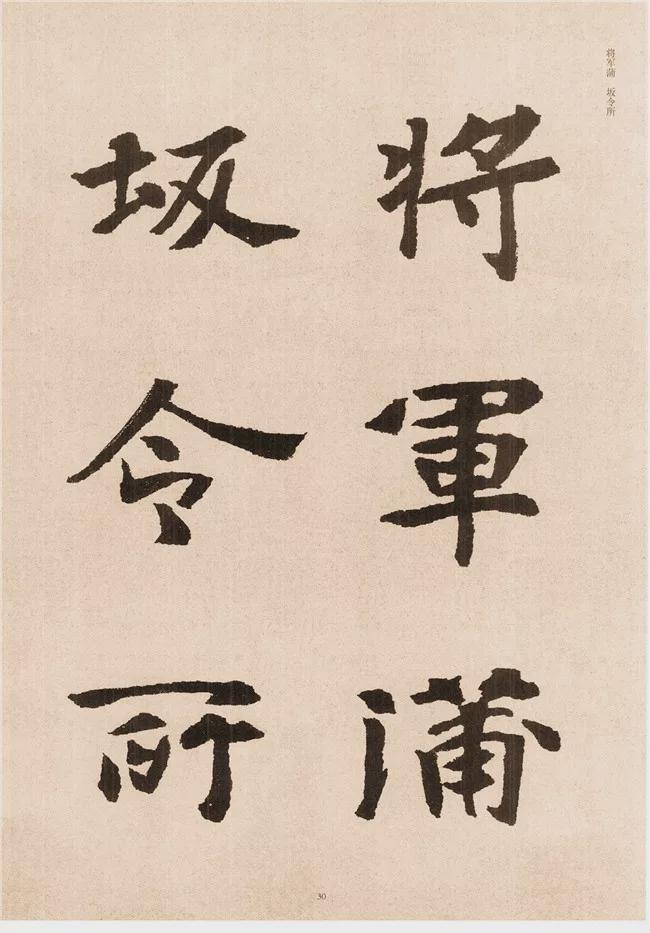 将军蒲　坂令所
将軍蒲
坂令所
30